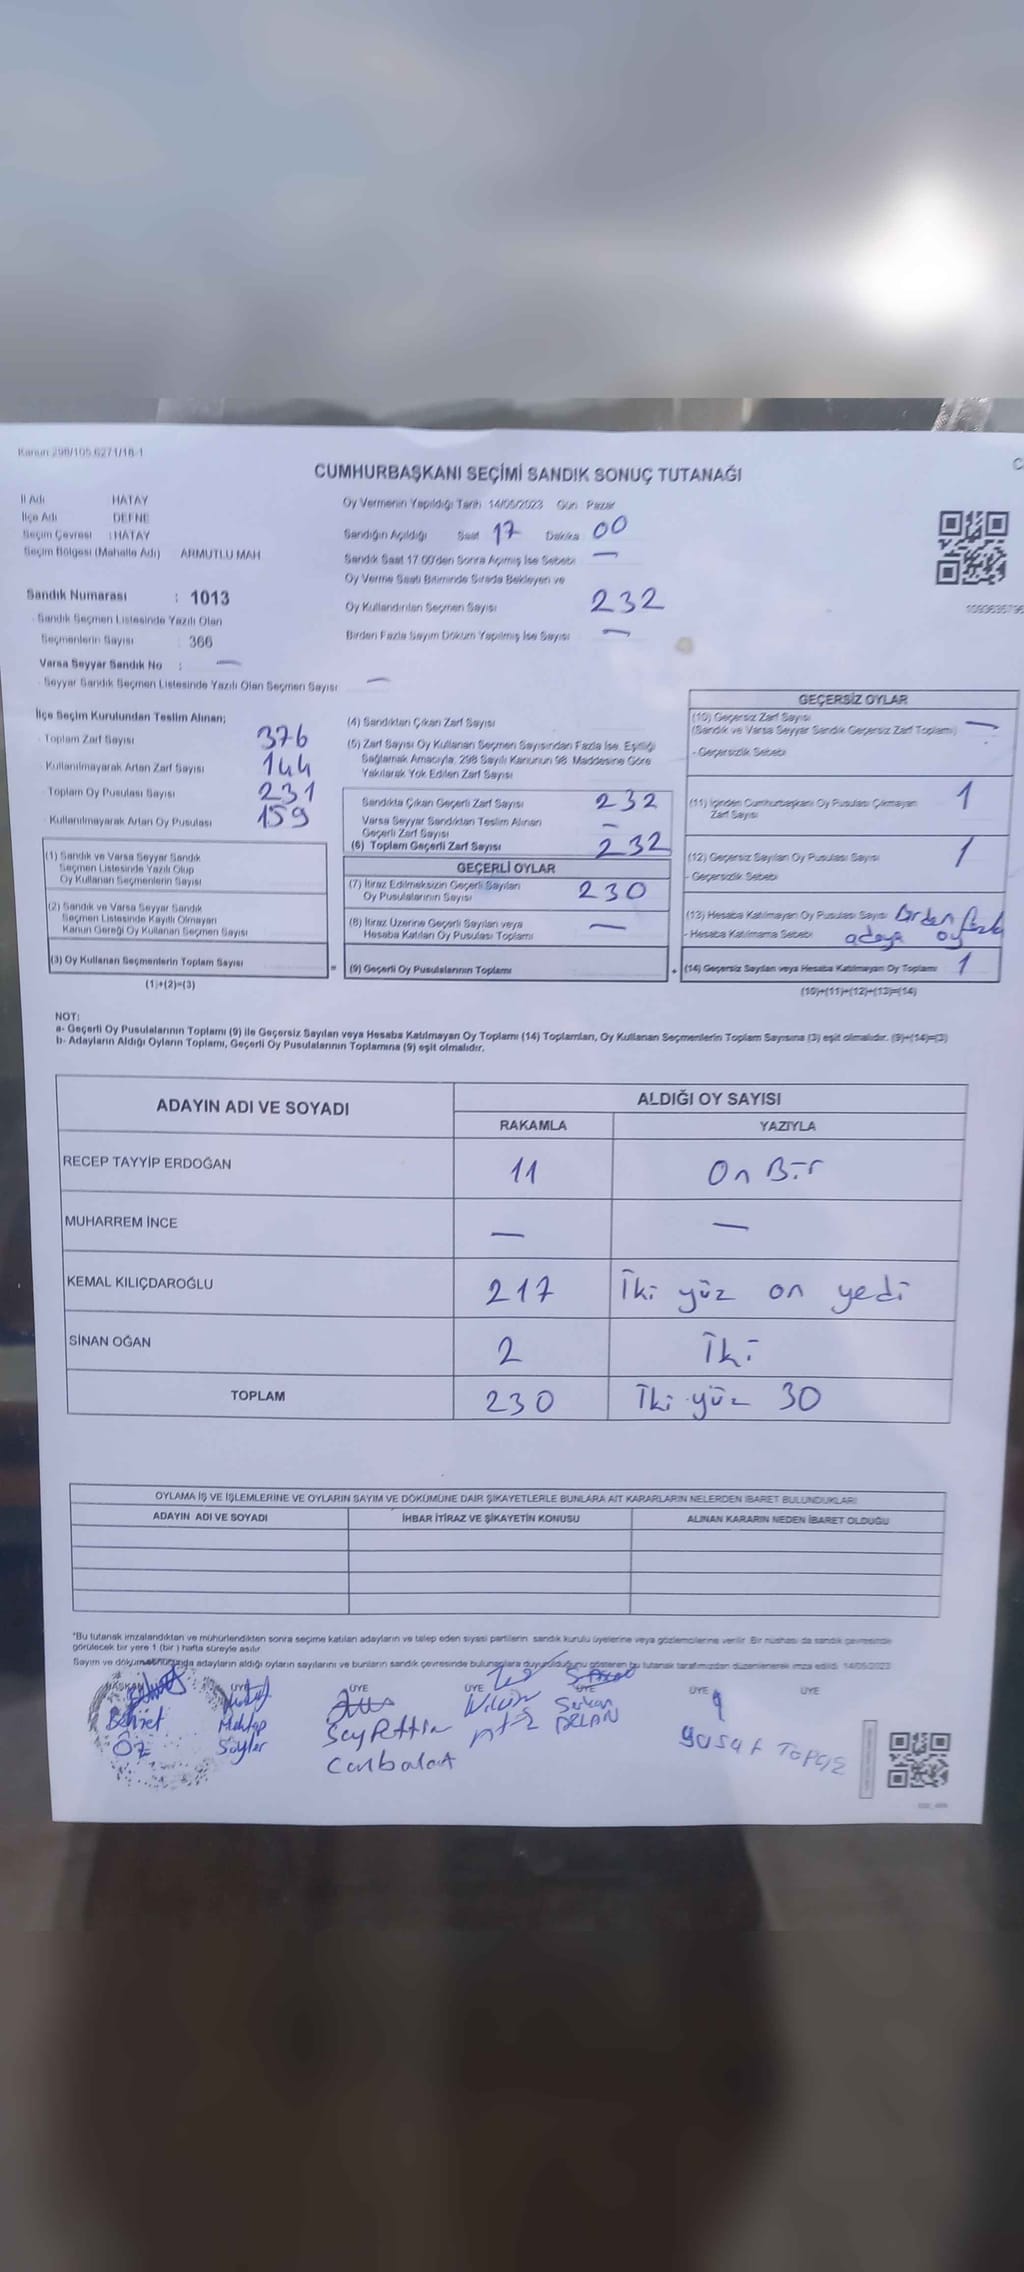 Kanun 298/105,6271/18-1
CUMHURBAŞKANI SEÇİMİ SANDIK SONUÇ TUTANAĞI
İl Adı HATAY
İlçe Adı DEFNE
Seçim Çevresi : HATAY
Seçim Bölgesi (Mahalle Adı) ARMUTLU MAH
Sandık Numarası : 1013
Sandık Seçmen Listesinde Yazılı Olan
Seçmenlerin Sayısı : 366
Varsa Seyyar Sandık No : —
Seyyar Sandık Seçmen Listesinde Yazılı Olan Seçmen Sayısı —
Oy Vermenin Yapıldığı Tarih 14/05/2023 Gün Pazar
Sandığın Açıldığı Saat 17 Dakika 00
Sandık Saat 17.00'den Sonra Açımış İse Sebebi —
Oy Verme Saati Bitiminde Sırada Bekleyen ve
Oy Kullandırılan Seçmen Sayısı 232
Birden Fazla Sayım Döküm Yapılmış İse Sayısı —
İlçe Seçim Kurulundan Teslim Alınan;
Toplam Zarf Sayısı 376
Kullanılmayarak Artan Zarf Sayısı 144
Toplam Oy Pusulası Sayısı 231
Kullanılmayarak Artan Oy Pusulası 159
(1) Sandık ve Varsa Seyyar Sandık
Seçmen Listesinde Yazılı Olup
Oy Kullanan Seçmenlerin Sayısı
(2) Sandık ve Varsa Seyyar Sandık
Seçmen Listesinde Kayıtlı Olmayan
Kanun Gereği Oy Kullanan Seçmen Sayısı
(3) Oy Kullanan Seçmenlerin Toplam Sayısı
(1)+(2)=(3)
(4) Sandıktan Çıkan Zarf Sayısı
(5) Zarf Sayısı Oy Kullanan Seçmen Sayısından Fazla İse, Eşitliği
Sağlamak Amacıyla, 298 Sayılı Kanunun 98. Maddesine Göre
Yakılarak Yok Edilen Zarf Sayısı
Sandıkta Çıkan Geçerli Zarf Sayısı 232
Varsa Seyyar Sandıktan Teslim Alınan
Geçerli Zarf Sayısı —
(6) Toplam Geçerli Zarf Sayısı 232
GEÇERLİ OYLAR
(7) İtiraz Edilmeksizin Geçerli Sayılan
Oy Pusulalarının Sayısı 230
(8) İtiraz Üzerine Geçerli Sayılan veya
Hesaba Katılan Oy Pusulası Toplamı —
= (9) Geçerli Oy Pusulalarının Toplamı
GEÇERSİZ OYLAR
(10) Geçersiz Zarf Sayısı
(Sandık ve Varsa Seyyar Sandık Geçersiz Zarf Toplamı) —
- Geçersizlik Sebebi
(11) İçinden Cumhurbaşkanı Oy Pusulası Çıkmayan
Zarf Sayısı 1
(12) Geçersiz Sayılan Oy Pusulası Sayısı 1
- Geçersizlik Sebebi
(13) Hesaba Katılmayan Oy Pusulası Sayısı birden fazla
- Hesaba Katılmama Sebebi adaya oy
+ (14) Geçersiz Sayılan veya Hesaba Katılmayan Oy Toplamı 1
(10)+(11)+(12)+(13)=(14)
NOT:
a- Geçerli Oy Pusulalarının Toplamı (9) ile Geçersiz Sayılan veya Hesaba Katılmayan Oy Toplamı (14) Toplamları, Oy Kullanan Seçmenlerin Toplam Sayısına (3) eşit olmalıdır. (9)+(14)=(3)
b- Adayların Aldığı Oyların Toplamı, Geçerli Oy Pusulalarının Toplamına (9) eşit olmalıdır.
ADAYIN ADI VE SOYADI
ALDIĞI OY SAYISI
RAKAMLA YAZIYLA
RECEP TAYYİP ERDOĞAN 11 On Bir
MUHARREM İNCE — —
KEMAL KILIÇDAROĞLU 217 İki yüz on yedi
SİNAN OĞAN 2 İki
TOPLAM 230 İki yüz 30
OYLAMA İŞ VE İŞLEMLERİNE VE OYLARIN SAYIM VE DÖKÜMÜNE DAİR ŞİKAYETLERLE BUNLARA AİT KARARLARIN NELERDEN İBARET BULUNDUKLARI
ADAYIN ADI VE SOYADI İHBAR İTİRAZ VE ŞİKAYETİN KONUSU ALINAN KARARIN NEDEN İBARET OLDUĞU
*Bu tutanak imzalandıktan ve mühürlendikten sonra seçime katılan adayların ve talep eden siyasi partilerin sandık kurulu üyelerine veya gözlemcilerine verilir. Bir nüshası da sandık çevresinde
görülecek bir yere 1 (bir) hafta süreyle asılır.
Sayım ve dökümü adayların aldığı oyların sayılarını ve bunların sandık çevresinde bulunanlara duyurulduğunu gösteren bu tutanak tarafımızdan düzenlenerek imza edildi. 14/05/2023
BAŞKAN ÜYE ÜYE ÜYE ÜYE ÜYE ÜYE
Behret Öz
Mehtap Söyler
Seyfettin Canbolat
Serkan
Yusuf Topçu